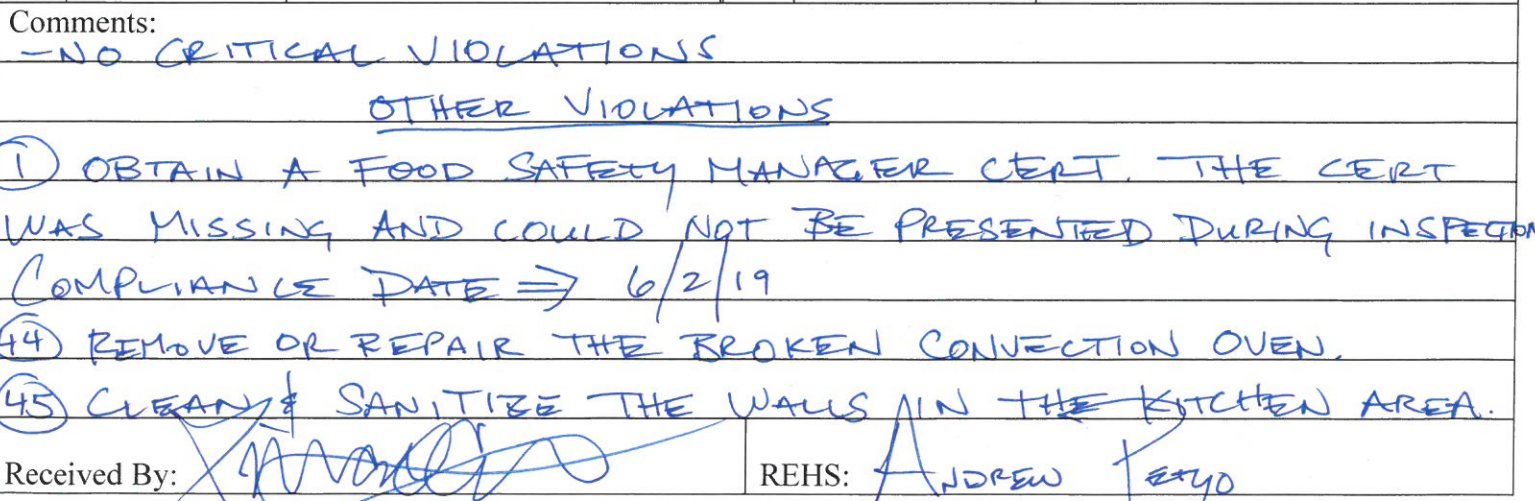 Comments:
-NO CRITICAL VIOLATIONS
OTHER VIOLATIONS
1 OBTAIN A FOOD SAFETY MANAGER CERT. THE CERT
WAS MISSING AND COULD NOT BE PRESENTED DURING INSPECTION
COMPLIANCE DATE ⇒ 6/2/19
44 REMOVE OR REPAIR THE BROKEN CONVECTION OVEN.
45 CLEAN & SANITIZE THE WALLS IN THE KITCHEN AREA.
Received By: REHS: ANDREW